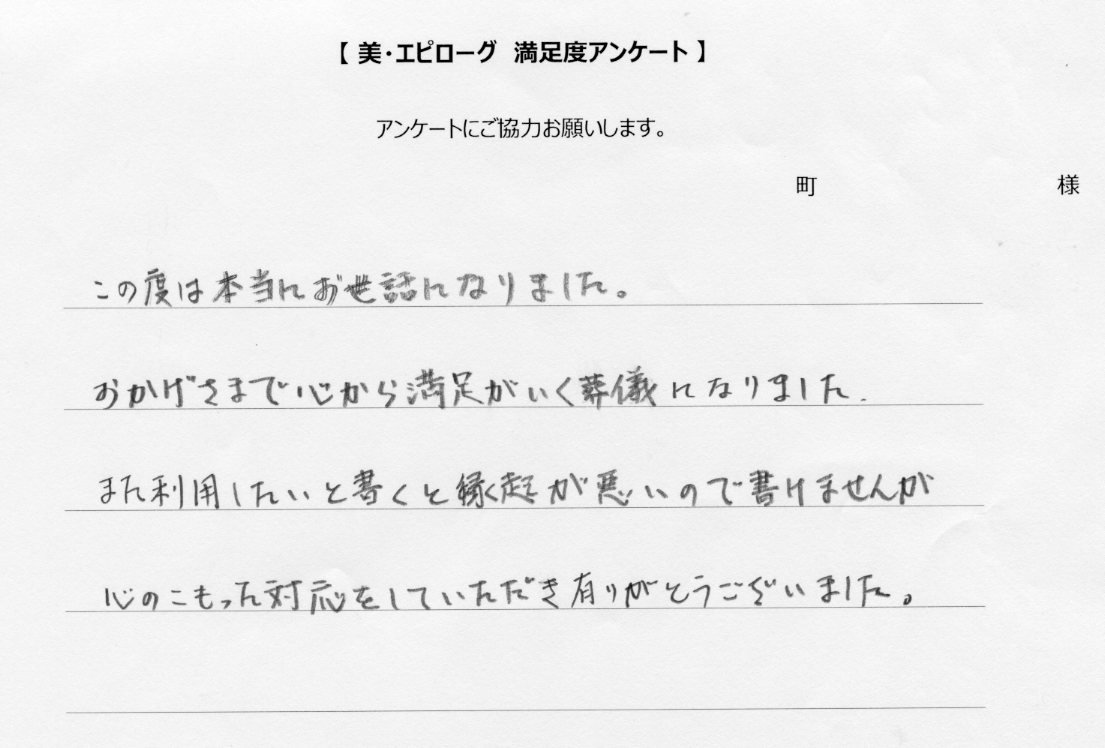 【 美・エピローグ 満足度アンケート 】
アンケートにご協力お願いします。
町 様
この度は本当にお世話になりました。
おかげさまで心から満足がいく葬儀になりました.
また利用したいと書くと縁起が悪いので書けませんが
心のこもった対応をしていただき有りがとうございました。